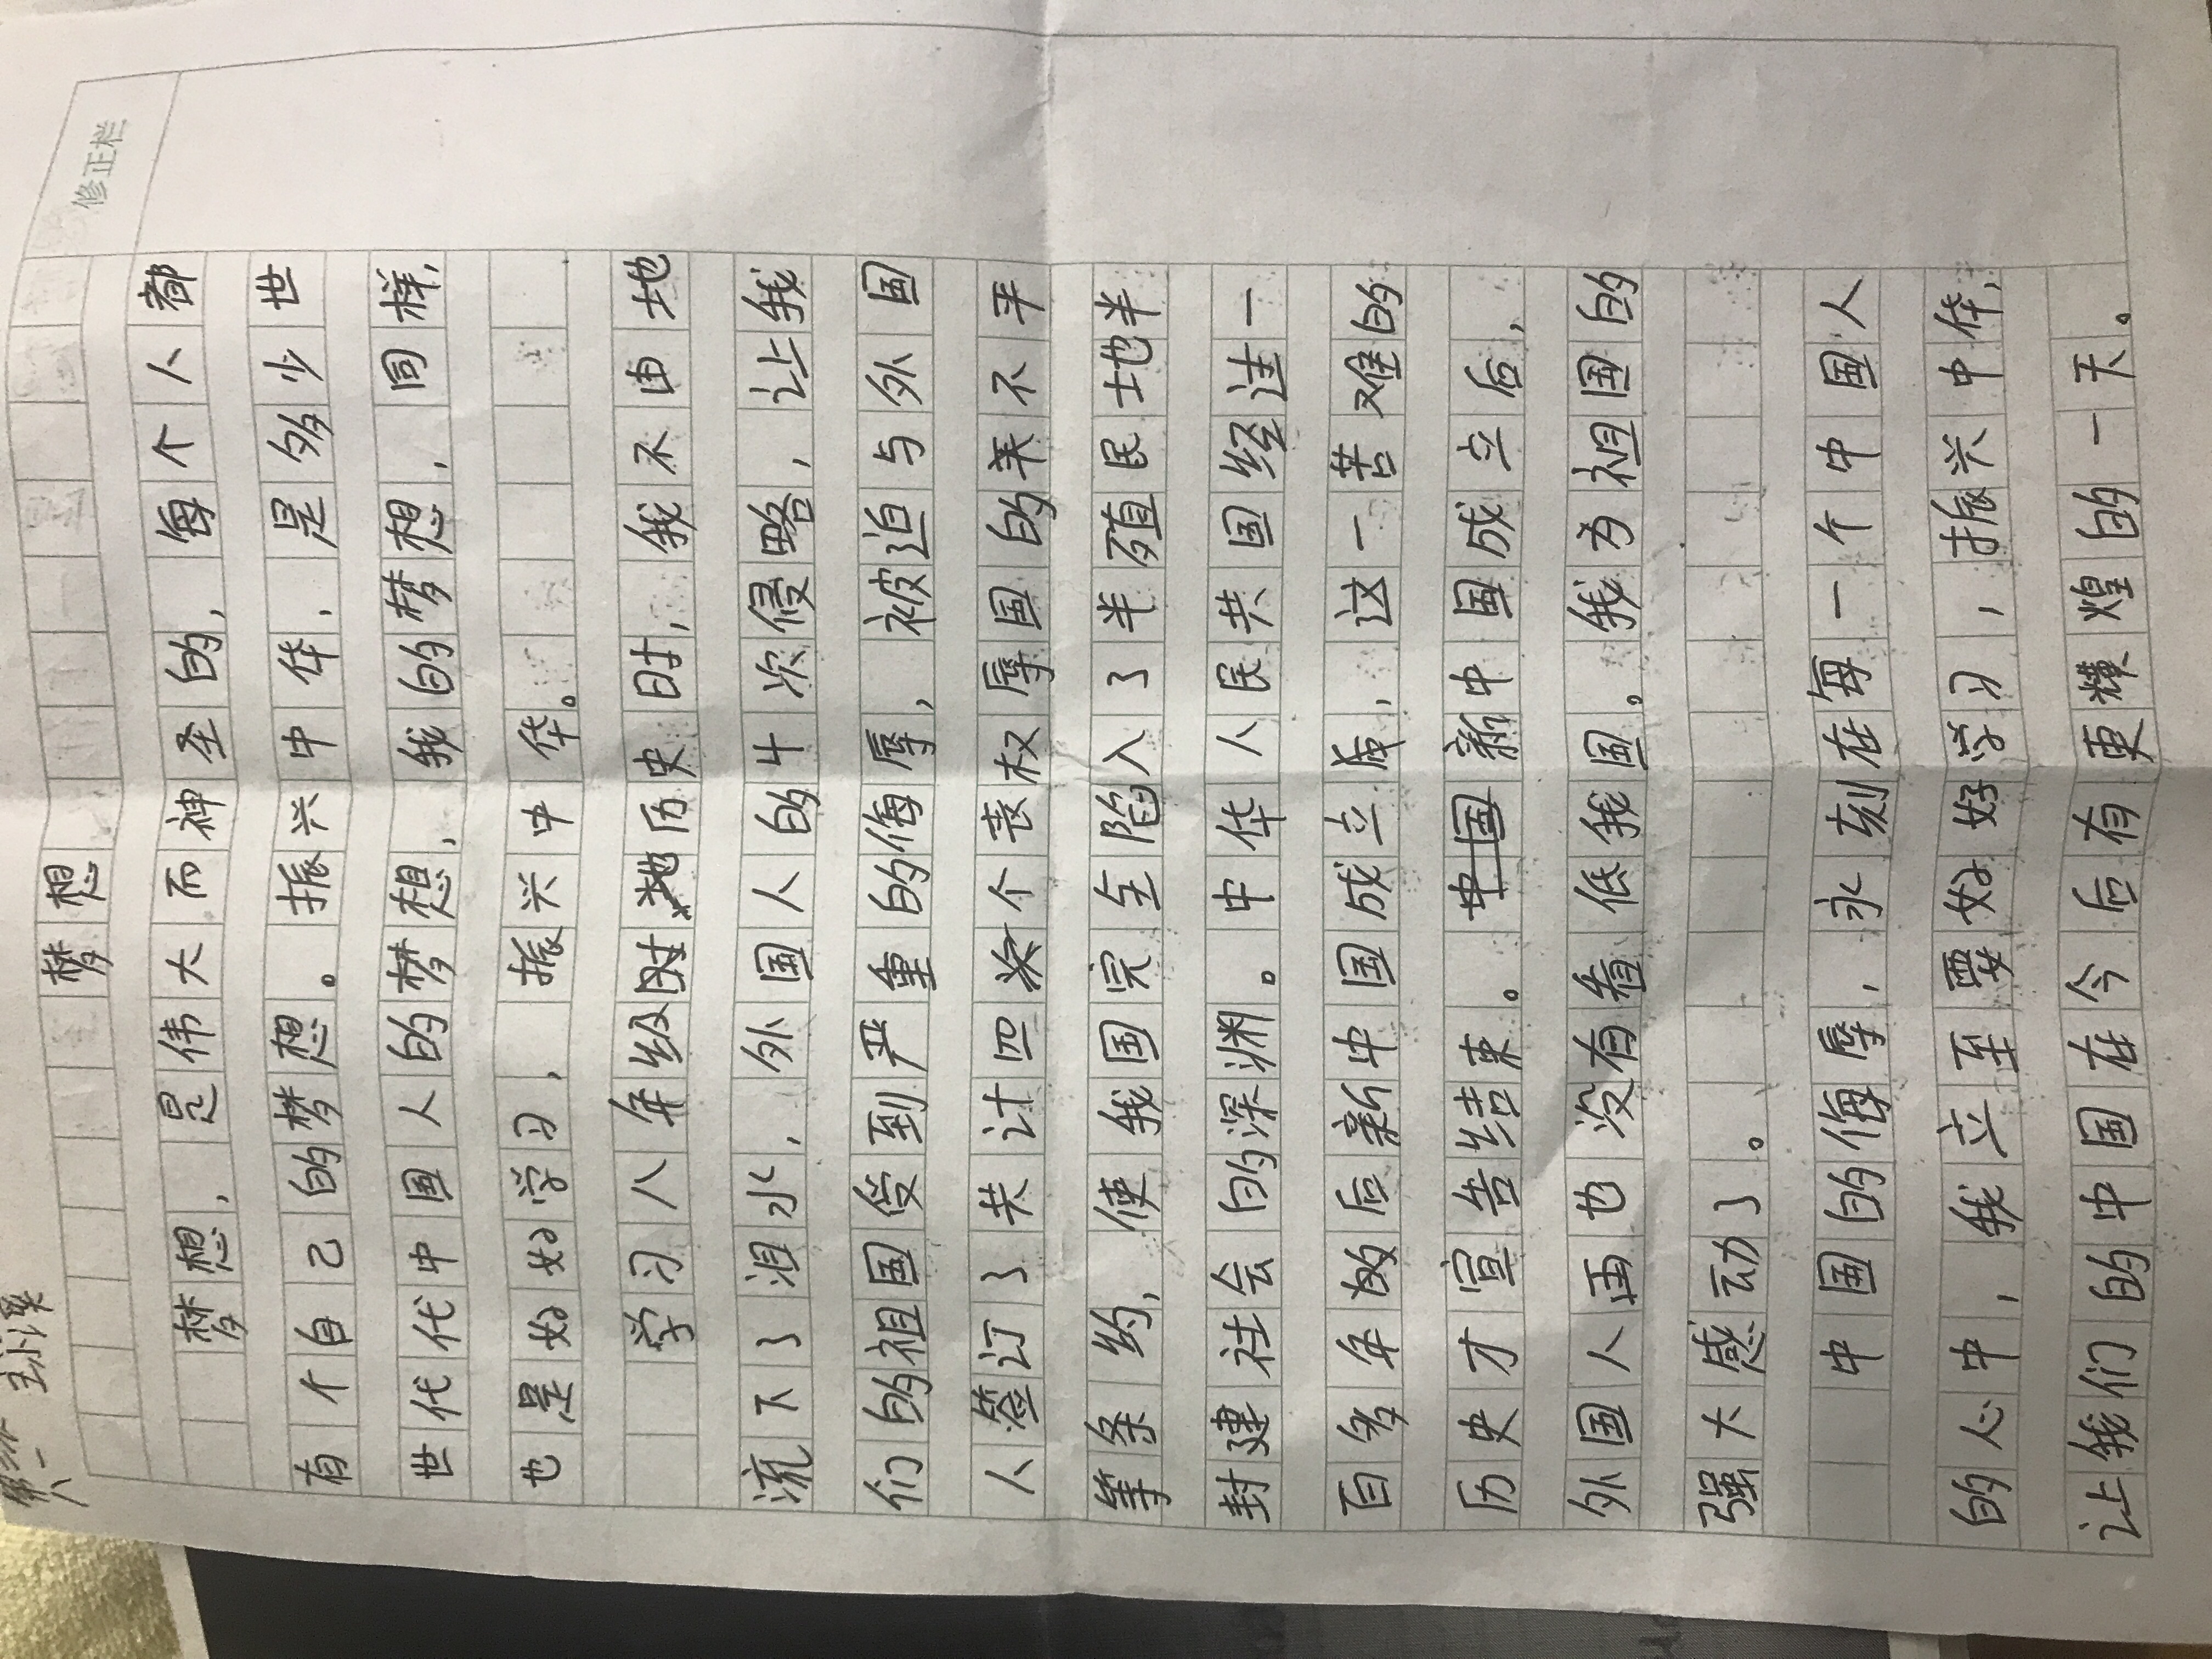 八一 王小溪
梦想
修正栏
梦想，是伟大而神圣的，每个人都
有个自己的梦想。振兴中华，是多少世
世代代中国人的梦想，我的梦想，同样，
也是好好学习，振兴中华。
学习八年级时历史时，我不由地
流下了泪水，外国人的十次侵略，让我
们的祖国受到严重的侮辱，被迫与外国
人签订了共计四个丧权辱国的不平
等条约，使我国完全陷入了半殖民地半
封建社会的深渊。中华人民共国经过一
百多年的后新中国成立后，这一苦难的
历史才宣告结束。新中国成立后，
外国人再也没有看低我国。我为祖国的
强大感动了。
中国的侮辱，永刻在每一个中国人
的心中，我立至要好好学习，振兴中华，
让我们的中国在今后有更辉煌的一天。